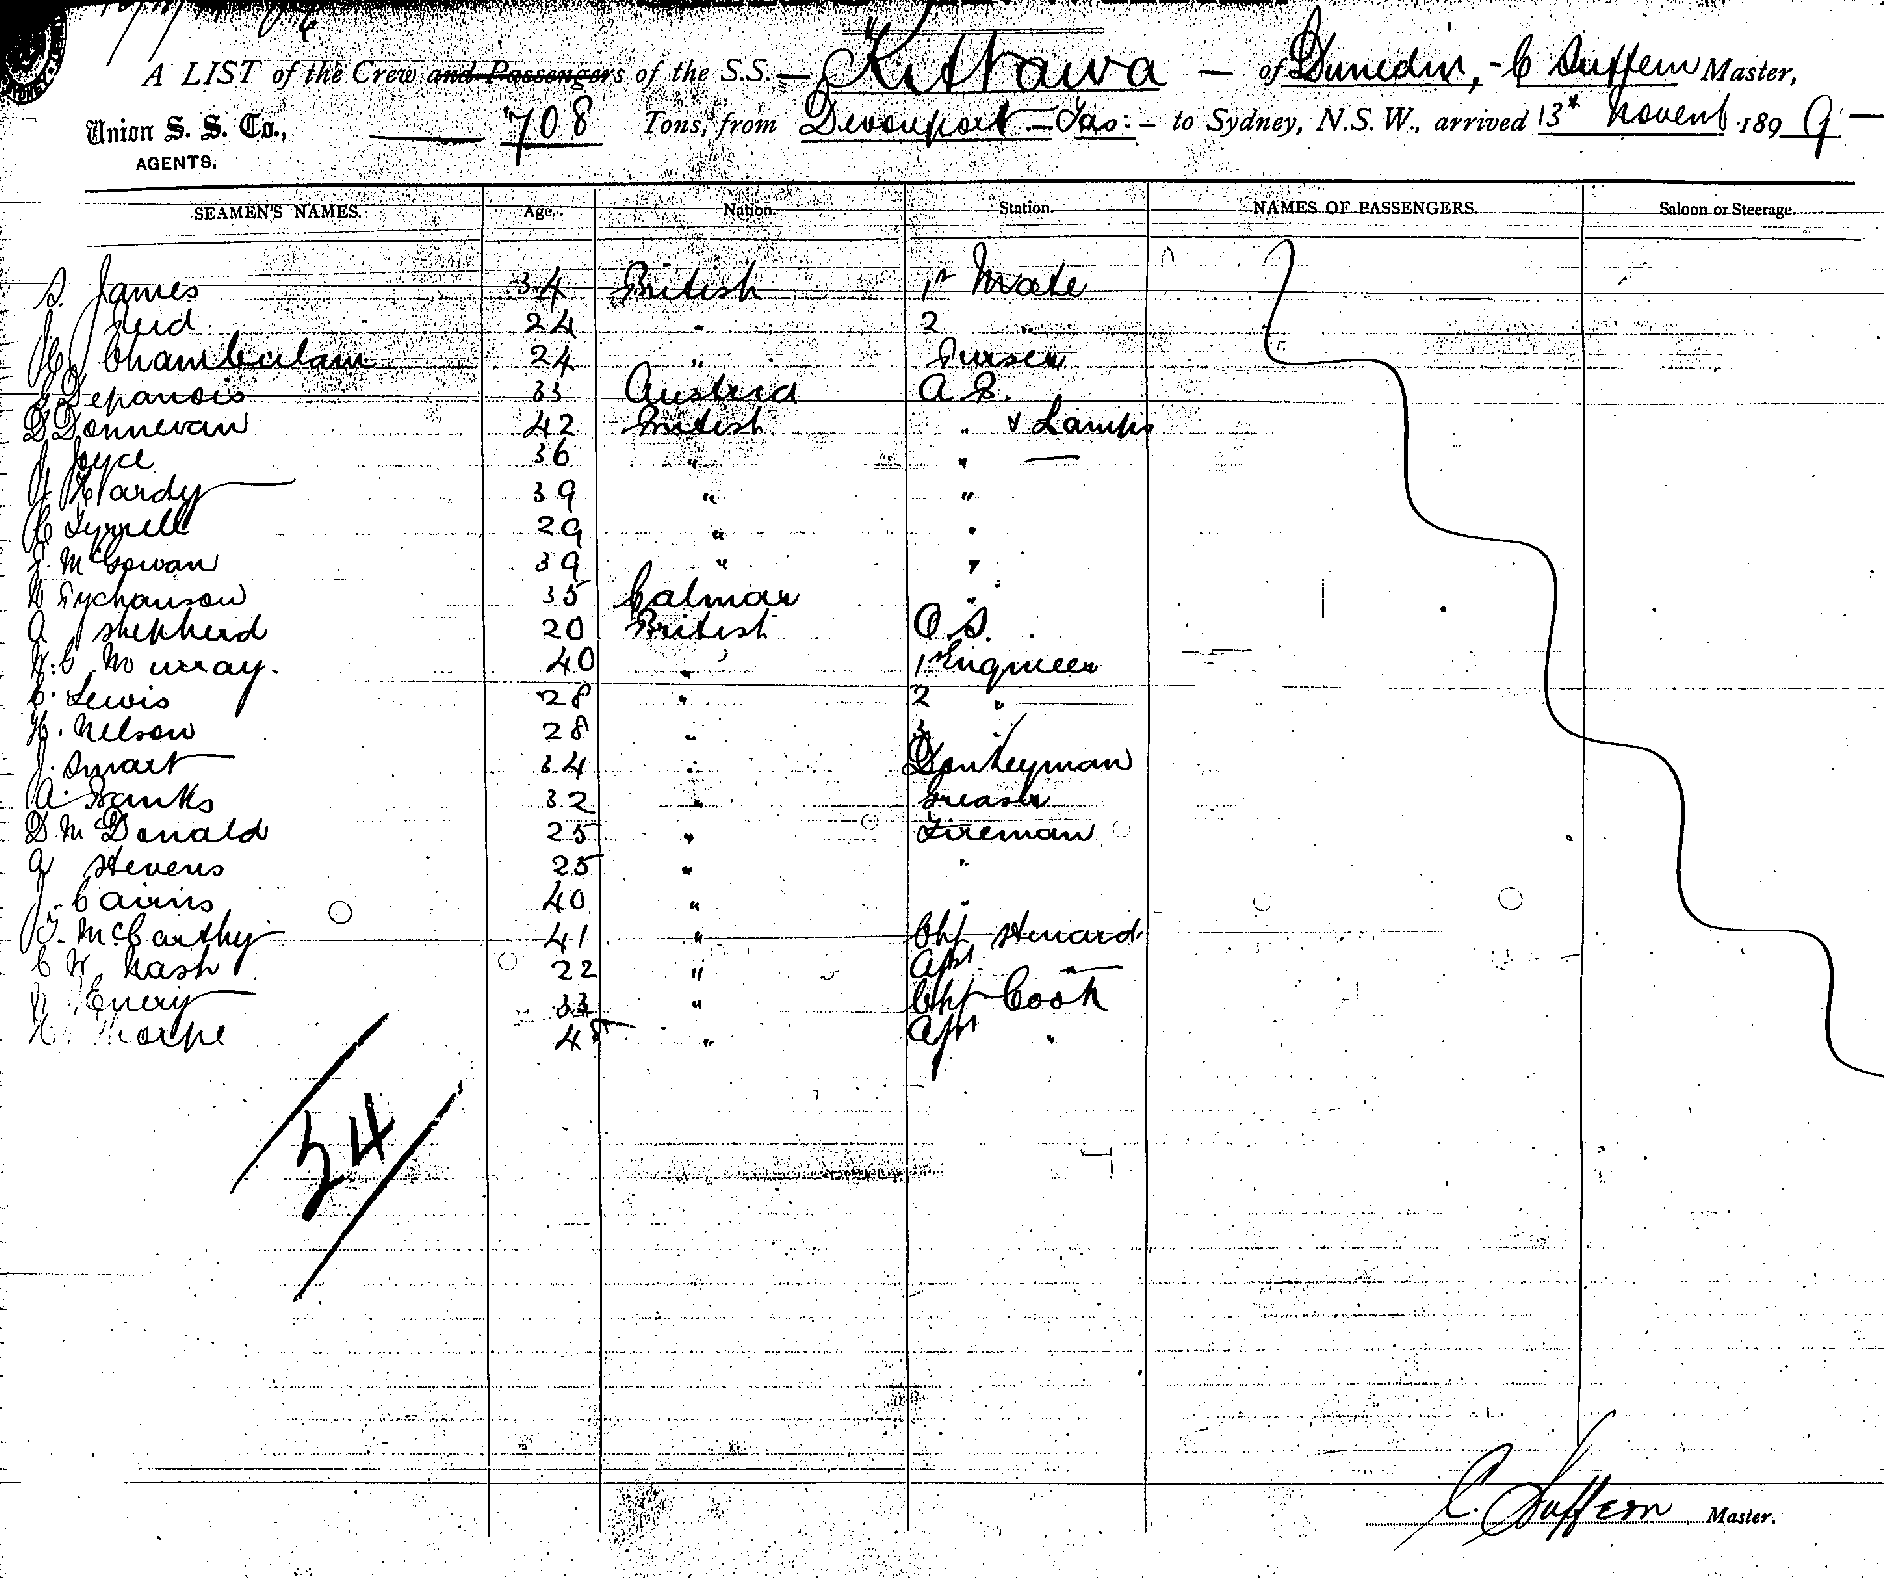 A LIST of the Crew and Passengers of the S.S. — Kittawa — of Dunedin, - C Suffern Master,
Union S. S. Co., — 708 Tons, from Devonport - Tas: - to Sydney, N.S.W., arrived 13th Novemb 1899 —
AGENTS.
SEAMEN'S NAMES. Age. Nation. Station. NAMES OF PASSENGERS. Saloon or Steerage.
S. James 34 British 1st Mate
J. Reid 24 " 2 "
H. Chamberlain 24 " Purser
Depanois 33 Austria A B.
D Donnevan 42 British " & Lamps
J Joyce 36 " "
J Hardy 39 " "
C Tyrrell 29 " "
J. McGowan 39 " "
35 Calmar "
A Shepherd 20 British O S.
W. C Murray. 40 " 1st Engineer
C. Lewis 28 " 2 "
H. Nelson 28 " 3 "
J. Smart 34 " Donkeyman
A. Franks 32 " Greaser
D McDonald 25 " Fireman
G Stevens 25 " "
J. Cairns 40 " "
T. McCarthy 41 " Chf Steward
C W Nash 22 " Asst —
Emery 33 " Chf Cook
H. Thorpe 45 " Asst "
34
C. Suffern Master.